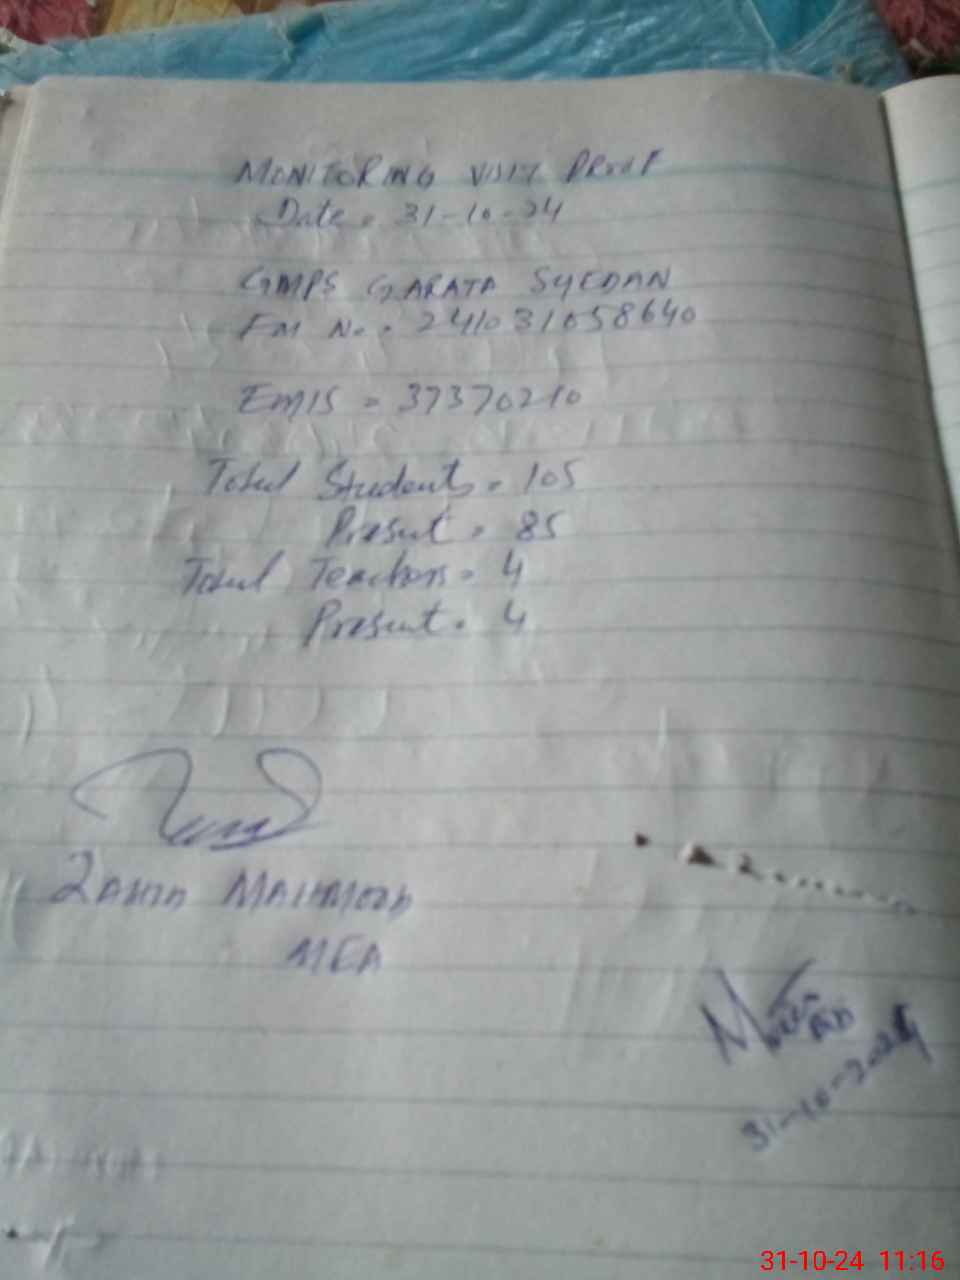 MONITORING VISIT PROOF
Date = 31-10-24
GMPS GARATA SYEDAN
FM No. = 241031058640
EMIS = 37370210
Total Students = 105
Present = 85
Total Teachers = 4
Present = 4
ZAHID MAHMOOD
MEA
31-10-2024
31-10-24 11:16